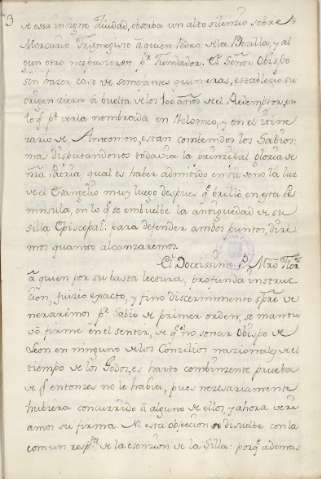 3
de esta insigne Ciudad, observa un alto silencio sobre
Mercurio Trismegisto à quien Pedro de la Peralta, y al
gun otro reputaron pr. fundador. El Señor Obispo
sin hacer caso de semejantes quimeras, establece su
origen à buelta de los 100 años de el Redemptor, por
lo qe. pr. verla nombrada en Ptolomeo, y en el itine
rario de Antonino, están contenidos los Sabios:
mas disputandonos todavia la principal gloria de
mi Patria, qual es haber admitido en su seno la luz
de el Evangelio muy luego despues qe. brilló en esta Pe
ninsula, en lo qe. se embuelbe la antiguedad de su
silla Episcopal: para defender ambos puntos, dire
mos quanto alcanzaremos.
El Doctissimo P. Mro. Florez
à quien por su basta lectura, profunda instruc
cion, juicio exacto, y fino discernimiento spre. ve
neraremos pr. Sabio de primer orden, se mantu
vo firme en el sentir, de qe. no sonar Obispo de
Leon en ninguno de los Concilios nacionales de el
tiempo de los Godos, es tanto combincente prueba
de qe. entonces no le habia, pues necesariamente
hubiera concurrido à alguno de ellos, y ahora vere
amos su firma. Mas esta objecion se disuelbe con la
comun respta. de la esencion de la Silla: porqe. ademas